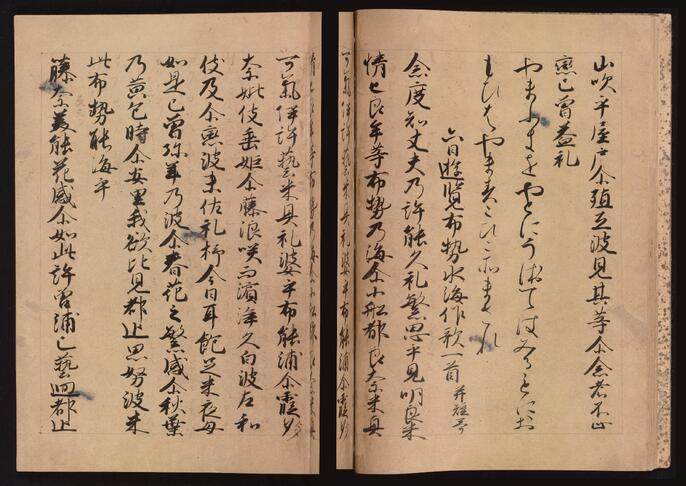 山吹乎屋戸尓殖弖波見其等尓念者不止
恋己曽益礼
やまふきをやとにうゑてはみることにお
もひはやますこひこそまされ
六日遊覧布勢水海作歌一首 并短哥
念度知丈夫乃許能久礼繁思乎見明良米
情也良牟等布勢乃海尓小船都良奈米真
可氣伊許藝米具礼婆乎布能浦尓霞多
奈妣伎垂姫尓藤浪咲而濱浄久白波左和
伎及尓恋波末佐礼杼今日耳飽足米夜母
如是己曽弥年乃波尓春花之繁盛尓秋葉
乃黄色時尓安里我欲比見都追思努波米
此布勢能海乎
藤奈美能花盛尓如此許曽浦己藝廻都追